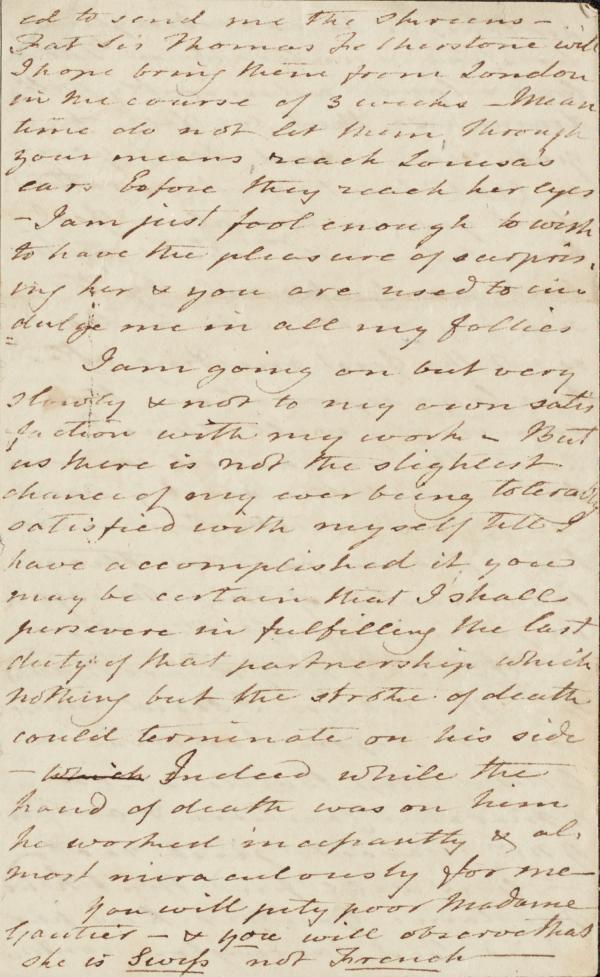 ed to send me the skreens –
Fat Sir Thomas Fetherstone will
I hope bring them from London
in the course of 3 weeks – Mean
time do not let them through
your means reach Louisa's
ears before they reach her eyes
– I am just fool enough to wish
to have the pleasure of surpris-
ing her & you are used to in-
dulge me in all my follies
I am going on but very
slowly & not to my own satis
faction with my work – But
as there is not the slightest
chance of my ever being tolerably
satisfied with myself till I
have accomplished it you
may be certain that I shall
persevere in fulfilling the last
duty of that partnership which
nothing but the stroke of death
could terminate on his side
– which Indeed while the
hand of death was on him
he worked incessantly & al-
most miraculously for me –
You will pity poor Madame
Gautier – & you will observe that
she is Swiss not French –